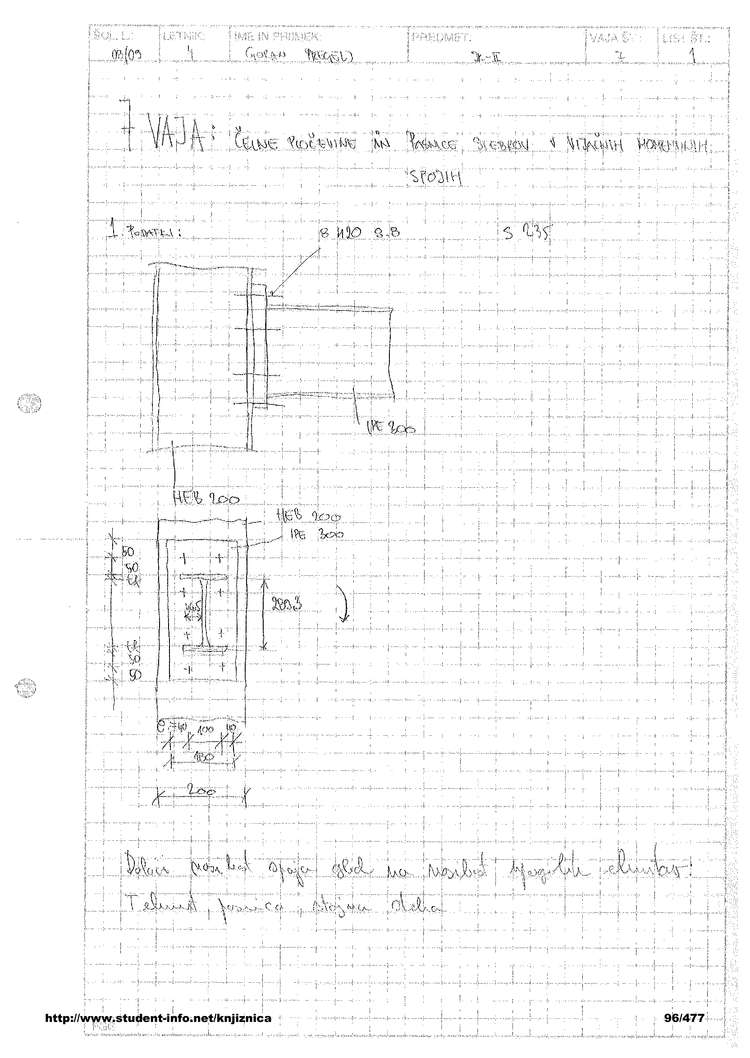 ŠOL. L.: LETNIK: IME IN PRIIMEK: PREDMET: VAJA ŠT.: LIST ŠT.:
08/09 4 GORAN JK-II 7 1
7 VAJA: ČELNE PLOČEVINE IN PASNICE STEBROV V VIJAČNIH MOMENTNIH
SPOJIH
1. PODATKI: 8 M20 8.8 S 235
IPE 300
HEB 200
HEB 200
IPE 300
50
50
289.3
50
e = 40 100 40
180
200
Določi nosilnost spoja glede na nosilnost elementov!
T element, pasnica, stojina stebra
http://www.student-info.net/knjiznica 96/477